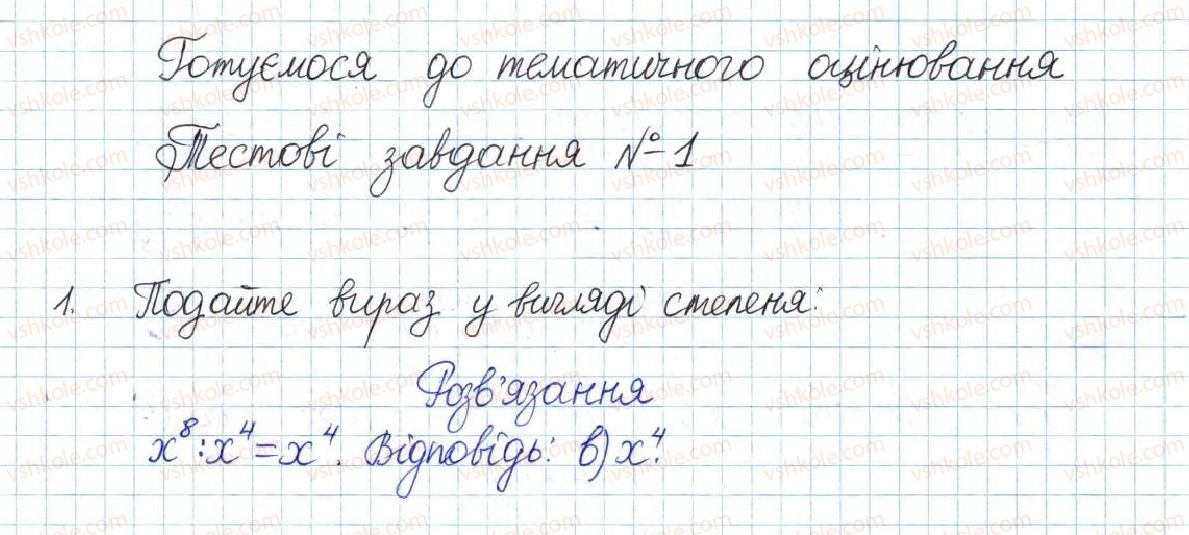 Готуємося до тематичного оцінювання
Тестові завдання №1
1. Подайте вираз у вигляді степеня:
Розв'язання
x⁸:x⁴=x⁴. Відповідь: в) x⁴.
vshkole.com